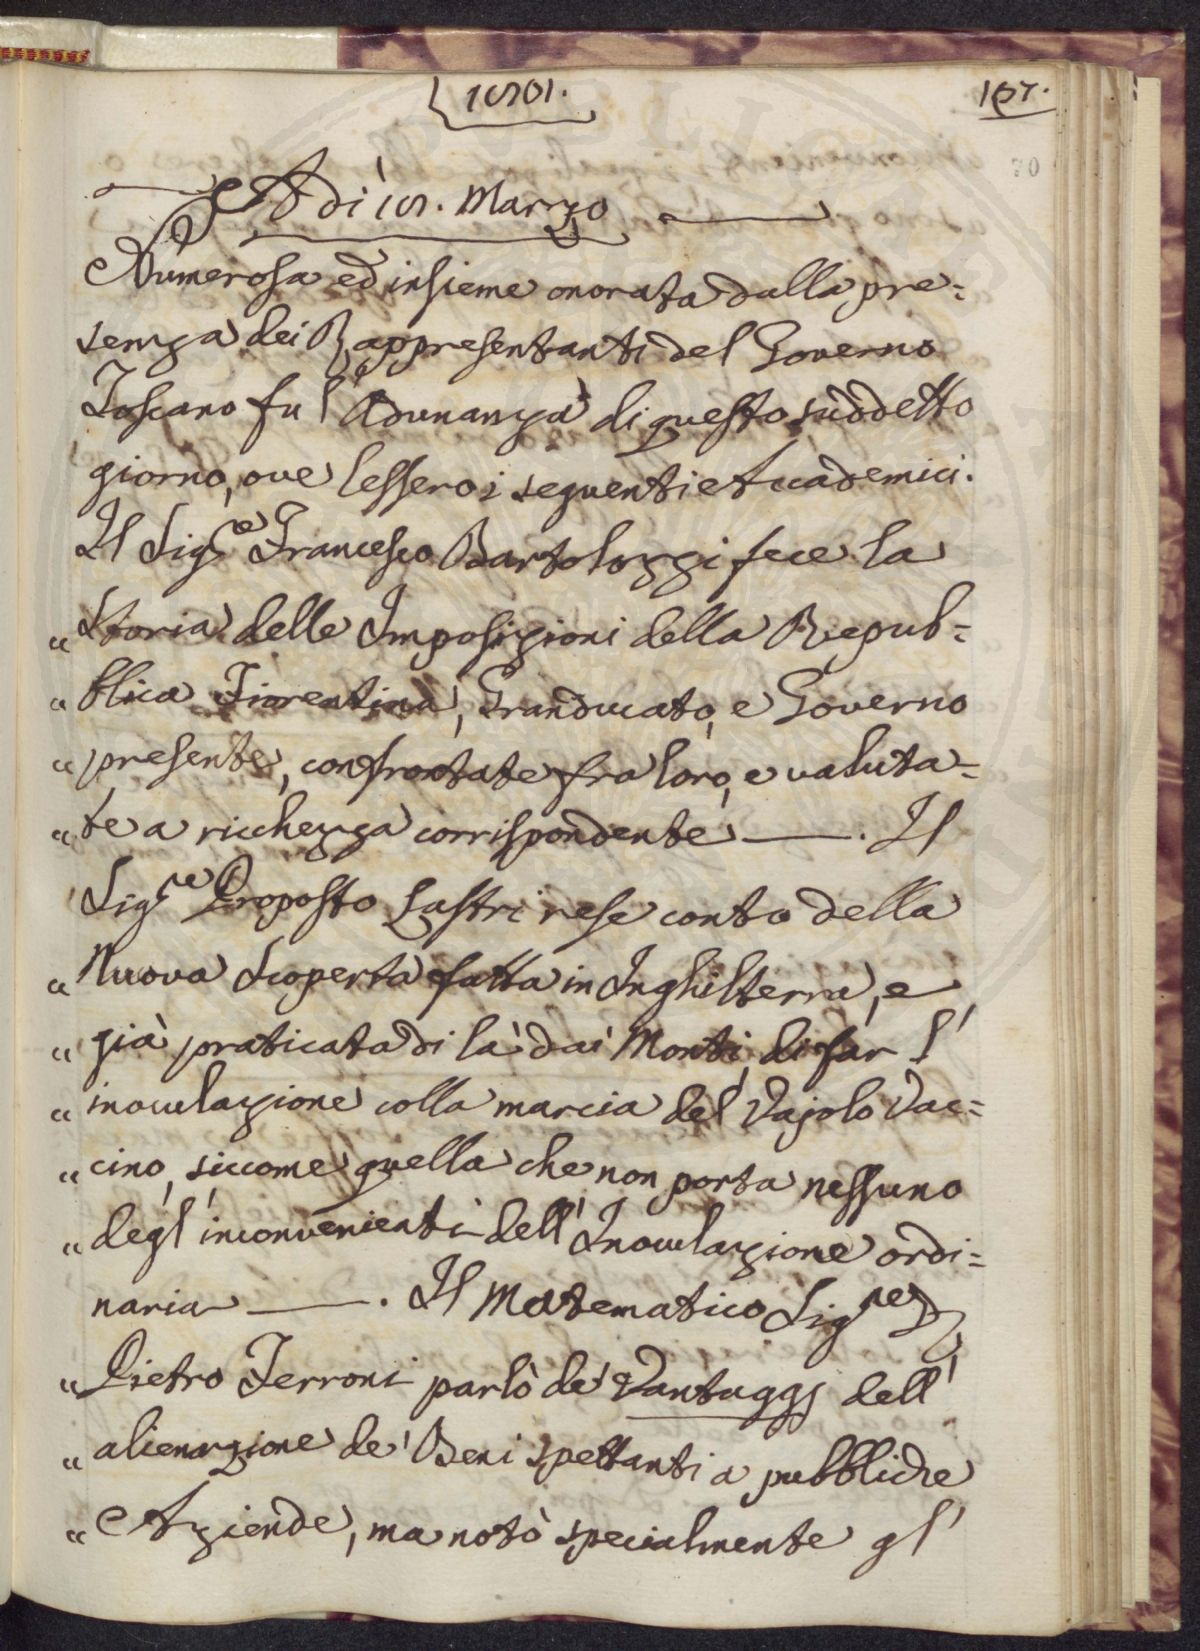 1801.
167.
Adì 18. Marzo
Numerosa ed insieme onorata dalla pre=
senza dei Rappresentanti del Governo
Toscano fu l'Adunanza di questo suddetto
giorno, ove lessero i seguenti Accademici.
Il Sig.re Francesco Bartolozzi fece la
„ Storia delle Imposizioni della Repub=
„ blica Fiorentina, Granducato, e Governo
„ presente, confrontate fra loro, e valuta=
„ te a ricchezza corrispondente ——. Il
Sig.re Proposto Lastri rese conto della
„ Nuova Scoperta fatta in Inghilterra, e
„ già praticata di là dai Monti di far l'
„ inoculazione colla marcia del Vajolo Vac=
„ cino, siccome quella che non porta nessuno
„ degl'inconvenienti dell'Inoculazione ordi=
naria ——. Il Matematico Sig.re
„ Pietro Ferroni parlò de' Vantaggj dell'
„ alienazione de' Beni spettanti a pubbliche
„ Aziende, ma notò specialmente gl'